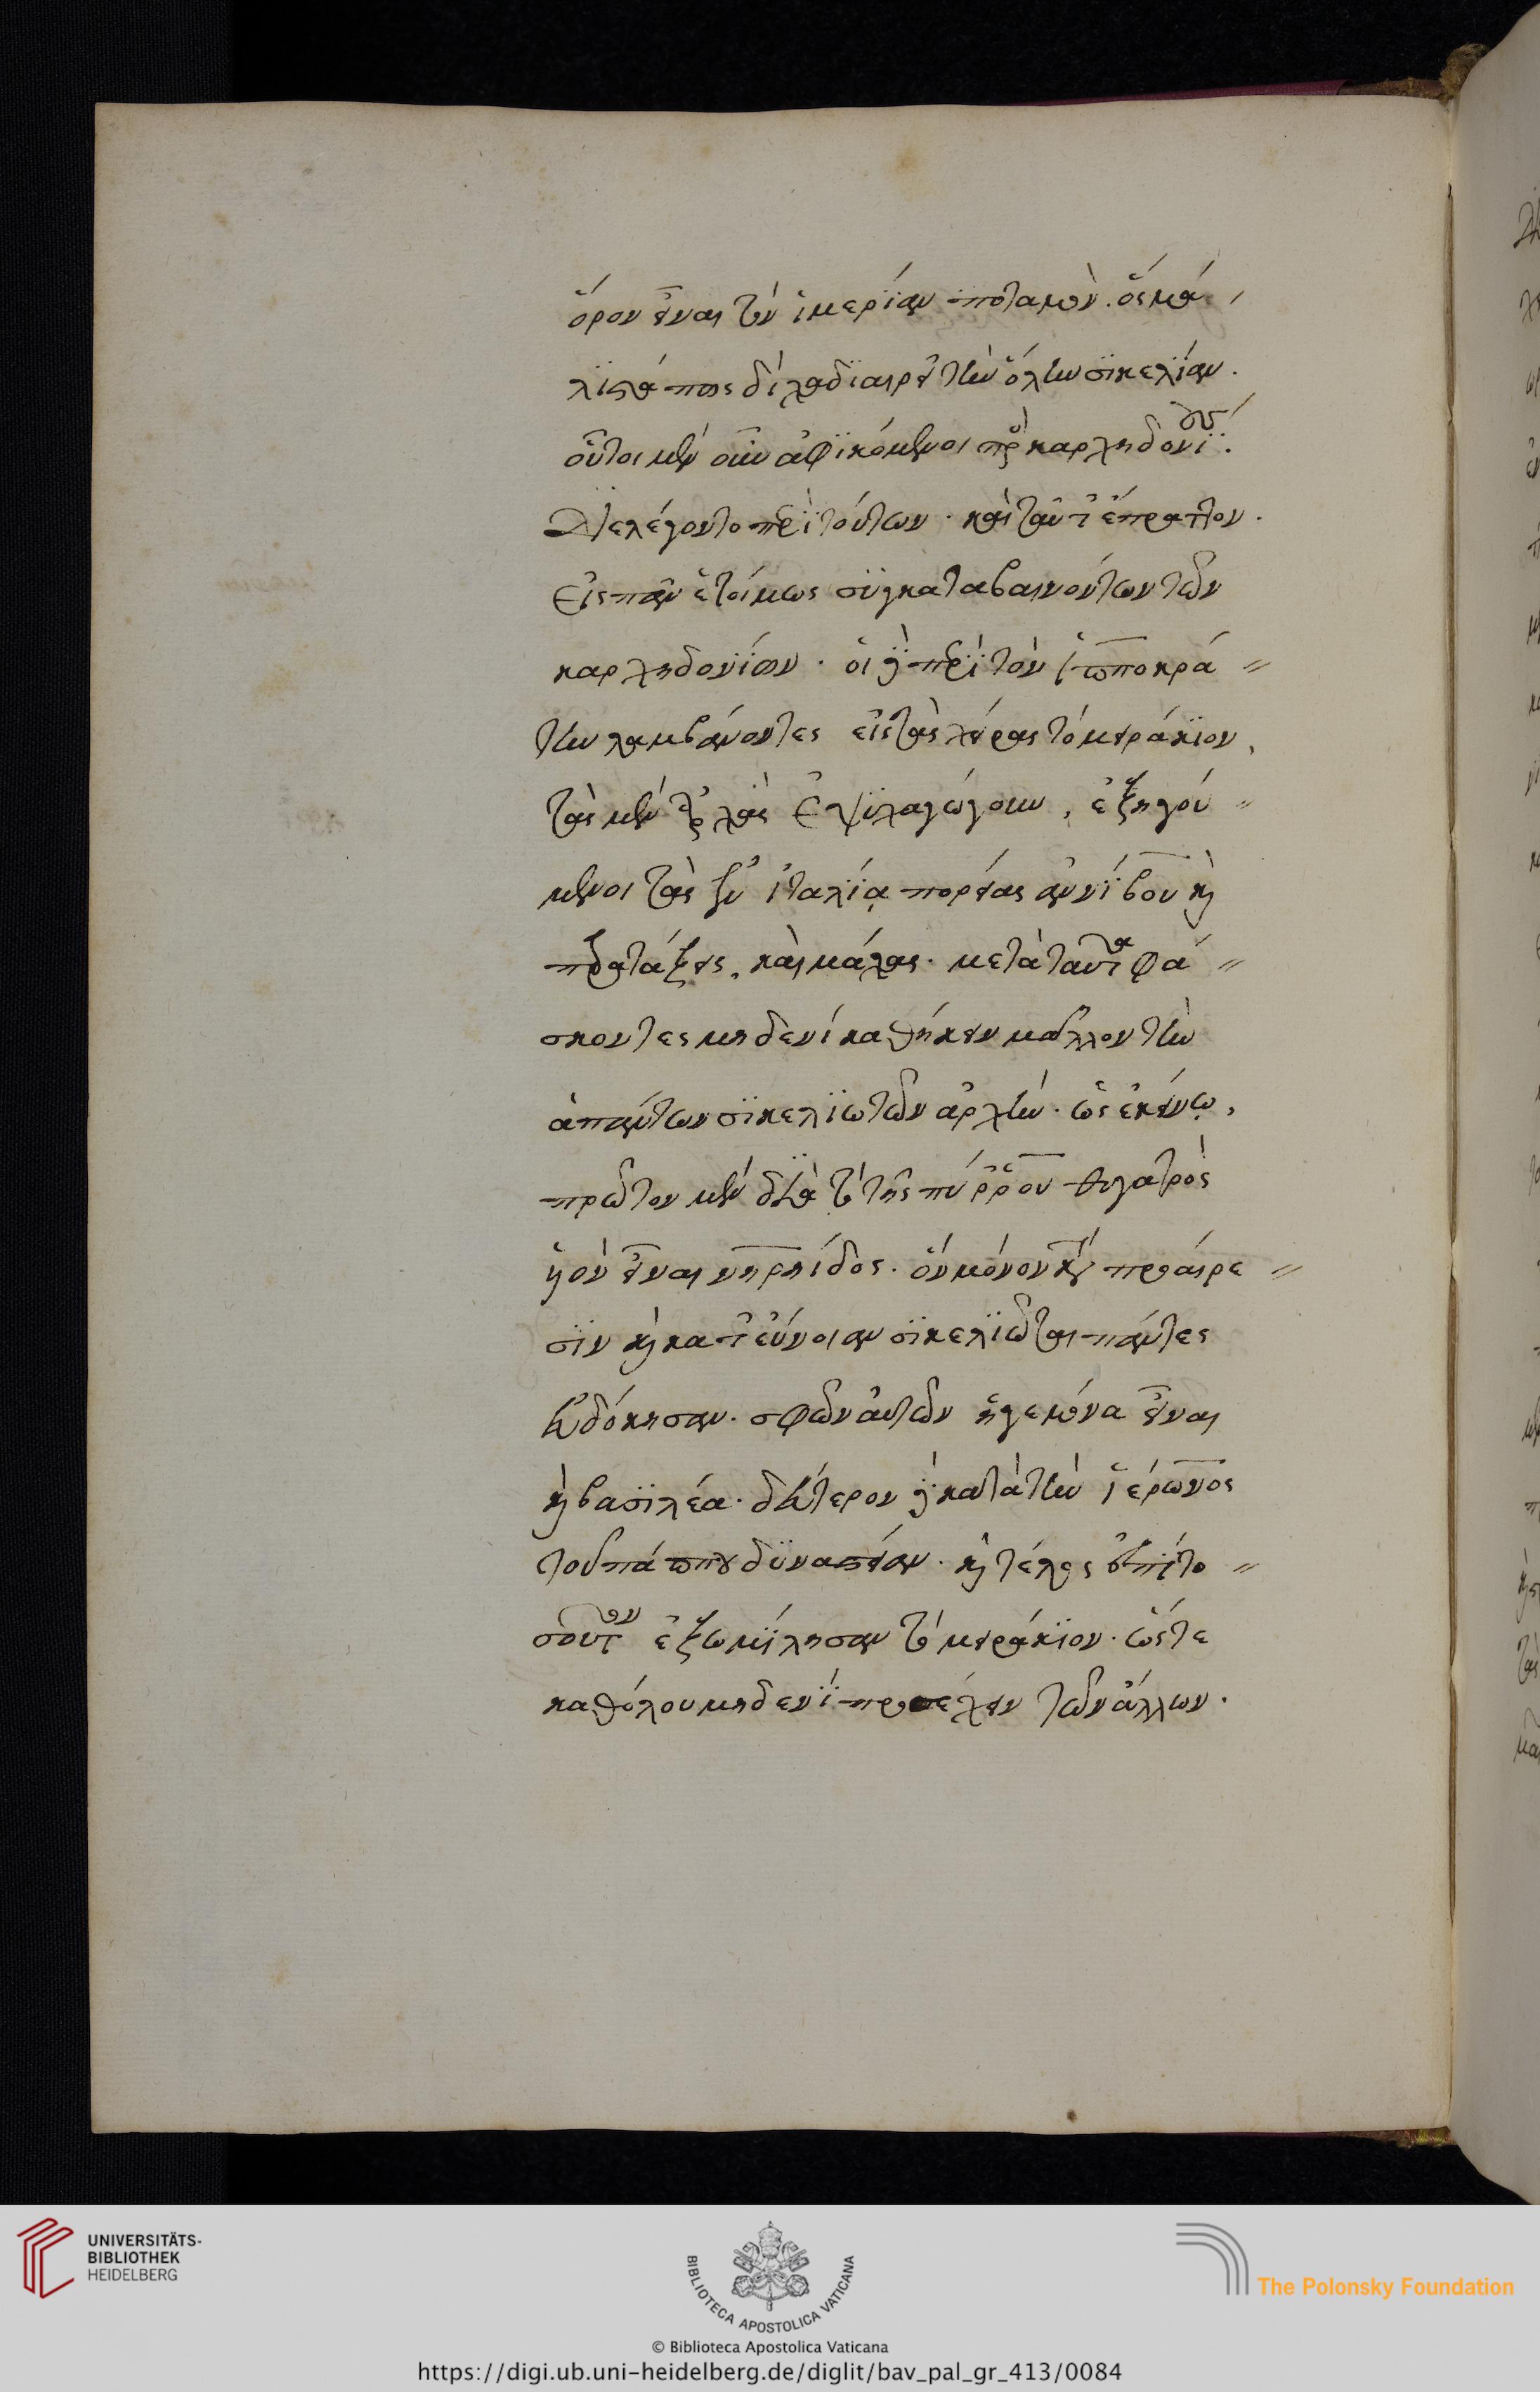 ὅρον εἶναι τὸν ἱμερίαν ποταμὸν. ὃς μά
λιστά πως δίχα διαιρεῖ τὴν ὅλην σικελίαν.
οὗτοι μὲν οὖν ἀφικόμενοι πρὸς καρχηδονίους.
διελέγοντο περὶ τούτων. καὶ ταῦτ' ἔπραττον.
εἰς πᾶν ἑτοίμως συγκαταβαινόντων τῶν
καρχηδονίων. οἱ δὲ περὶ τὸν ἱπποκρά =
την λαμβάνοντες εἰς τὰς χεῖρας τὸ μειράκιον,
τὰς μὲν ἀρχὰς ἐψυχαγώγουν, ἐξηγού =
μενοι τὰς ἐν ἰταλίᾳ πορείας ἀννίβου καὶ
παρατάξεις, καὶ μάχας. μετὰ ταῦτα φά =
σκοντες μηδενὶ καθήκειν μᾶλλον τὴν
ἁπάντων σικελιωτῶν ἀρχὴν. ὡς ἐκείνῳ,
πρῶτον μὲν διὰ τὸ τῆς πύρρου θυγατρὸς
ὑὸν εἶναι νηρηίδος. ὃν μόνον κατὰ προαίρε =
σιν καὶ κατ' εὔνοιαν σικελιῶται πάντες
εὐδόκησαν. σφῶν αὐτῶν ἡγεμόνα εἶναι
καὶ βασιλέα. δεύτερον δὲ κατὰ τὴν ἱέρωνος
τοῦ πάππου δυναστείαν. καὶ τέλος ἐπὶ το =
σοῦτον ἐξωμίλησαν τὸ μειράκιον. ὥστε
καθόλου μηδενὶ προσέχειν τῶν ἄλλων.
UNIVERSITÄTS-
BIBLIOTHEK
HEIDELBERG
BIBLIOTECA APOSTOLICA VATICANA
The Polonsky Foundation
© Biblioteca Apostolica Vaticana
https://digi.ub.uni-heidelberg.de/diglit/bav_pal_gr_413/0084